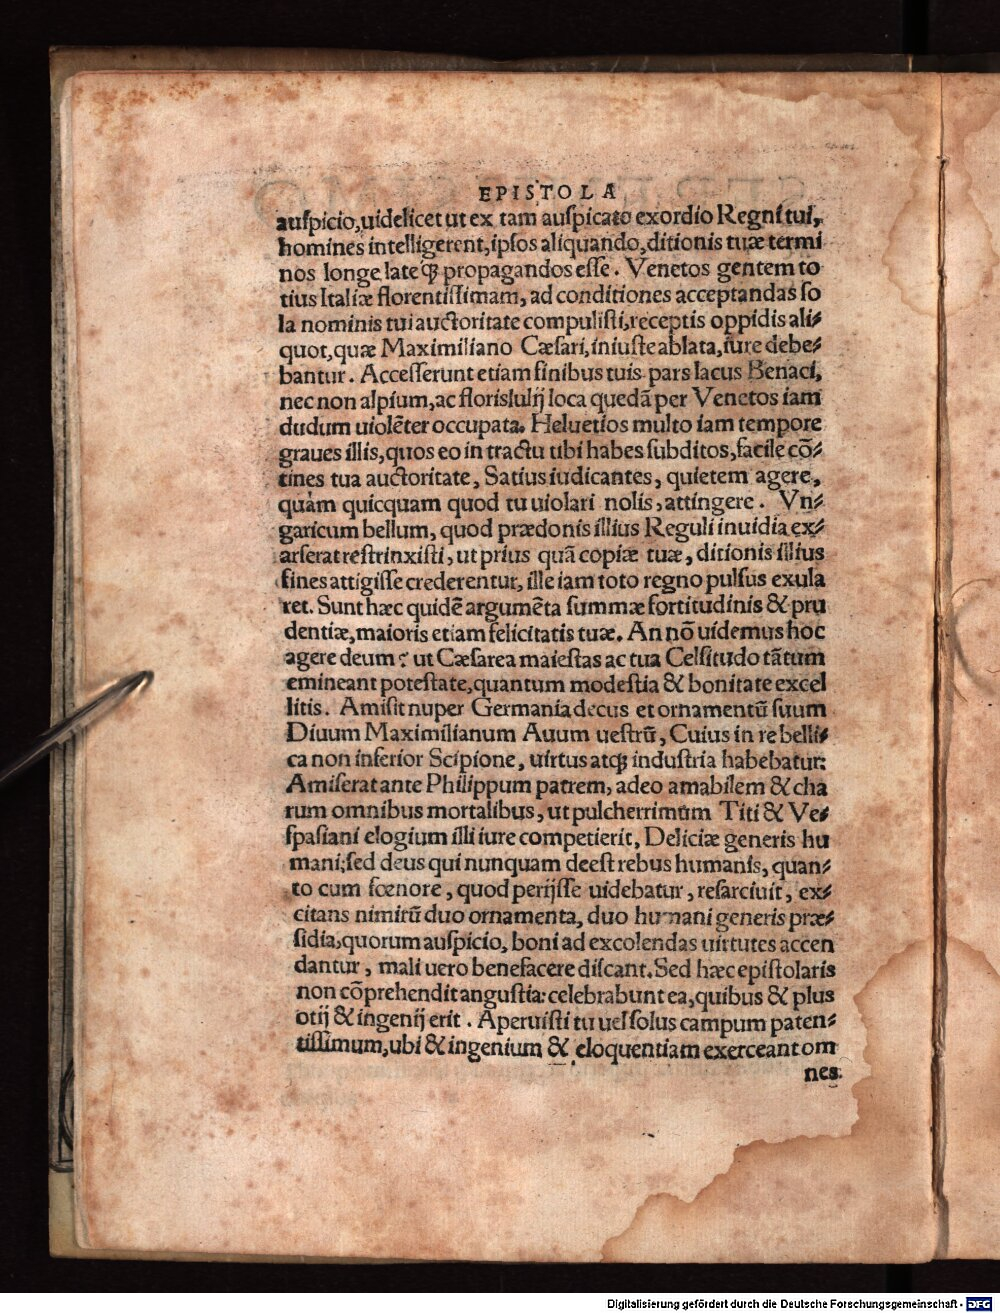 EPISTOLA
auſpicio,uidelicet ut ex tam auſpicato exordio Regni tui,
homines intelligerent,ipſos aliquando,ditionis tuæ termi
nos longe lateq́ꝫ propagandos eſſe. Venetos gentem to
tius Italiæ florentiſſimam, ad conditiones acceptandas ſo
la nominis tui auctoritate compuliſti,receptis oppidis ali⸗
quot,quæ Maximiliano Cæſari,iniuſte ablata,iure debe⸗
bantur. Acceſſerunt etiam finibus tuis pars lacus Benaci,
nec non alpium,ac floriſlulij loca quedã per Venetos iam
dudum uiolẽter occupata. Heluetios multo iam tempore
graues illis,quos eo in tractu tibi habes ſubditos,facile cõ⸗
tines tua auctoritate, Satius iudicantes, quietem agere,
quàm quicquam quod tu uiolari nolis,attingere. Vn⸗
garicum bellum, quod prædonis illius Reguli inuidia ex⸗
arſerat reſtrinxiſti, ut prius quã copiæ tuæ, ditionis illius
fines attigiſſe crederentur, ille iam toto regno pulſus exula
ret. Sunt hæc quidẽ argumẽta ſummæ fortitudinis & pru
dentiæ,maioris etiam felicitatis tuæ. An nõ uidemus hoc
agere deum: ut Cæſarea maieſtas ac tua Celſitudo tãtum
emineant poteſtate,quantum modeſtia & bonitate excel
litis. Amiſit nuper Germania decus et ornamentũ ſuum
Diuum Maximilianum Auum ueſtrũ, Cuius in re belli⸗
ca non inferior Scipione, uirtus atqꝫ induſtria habebatur:
Amiſerat ante Philippum patrem, adeo amabilem & cha
rum omnibus mortalibus, ut pulcherrimum Titi & Ve⸗
ſpaſiani elogium illi iure competierit, Deliciæ generis hu
mani;ſed deus qui nunquam deeſt rebus humanis, quan⸗
to cum fœnore, quod perijſſe uidebatur, reſarciuit, ex⸗
citans nimirũ duo ornamenta, duo humani generis præ⸗
ſidia,quorum auſpicio, boni ad excolendas uirtutes accen
dantur, mali uero benefacere diſcant. Sed hæc epiſtolaris
non cõprehendit anguſtia: celebrabunt ea,quibus & plus
otij & ingenij erit. Aperuiſti tu uel ſolus campum paten⸗
tiſſimum,ubi & ingenium & eloquentiam exerceant om
nes
Digitalisierung gefördert durch die Deutsche Forschungsgemeinschaft - DFG